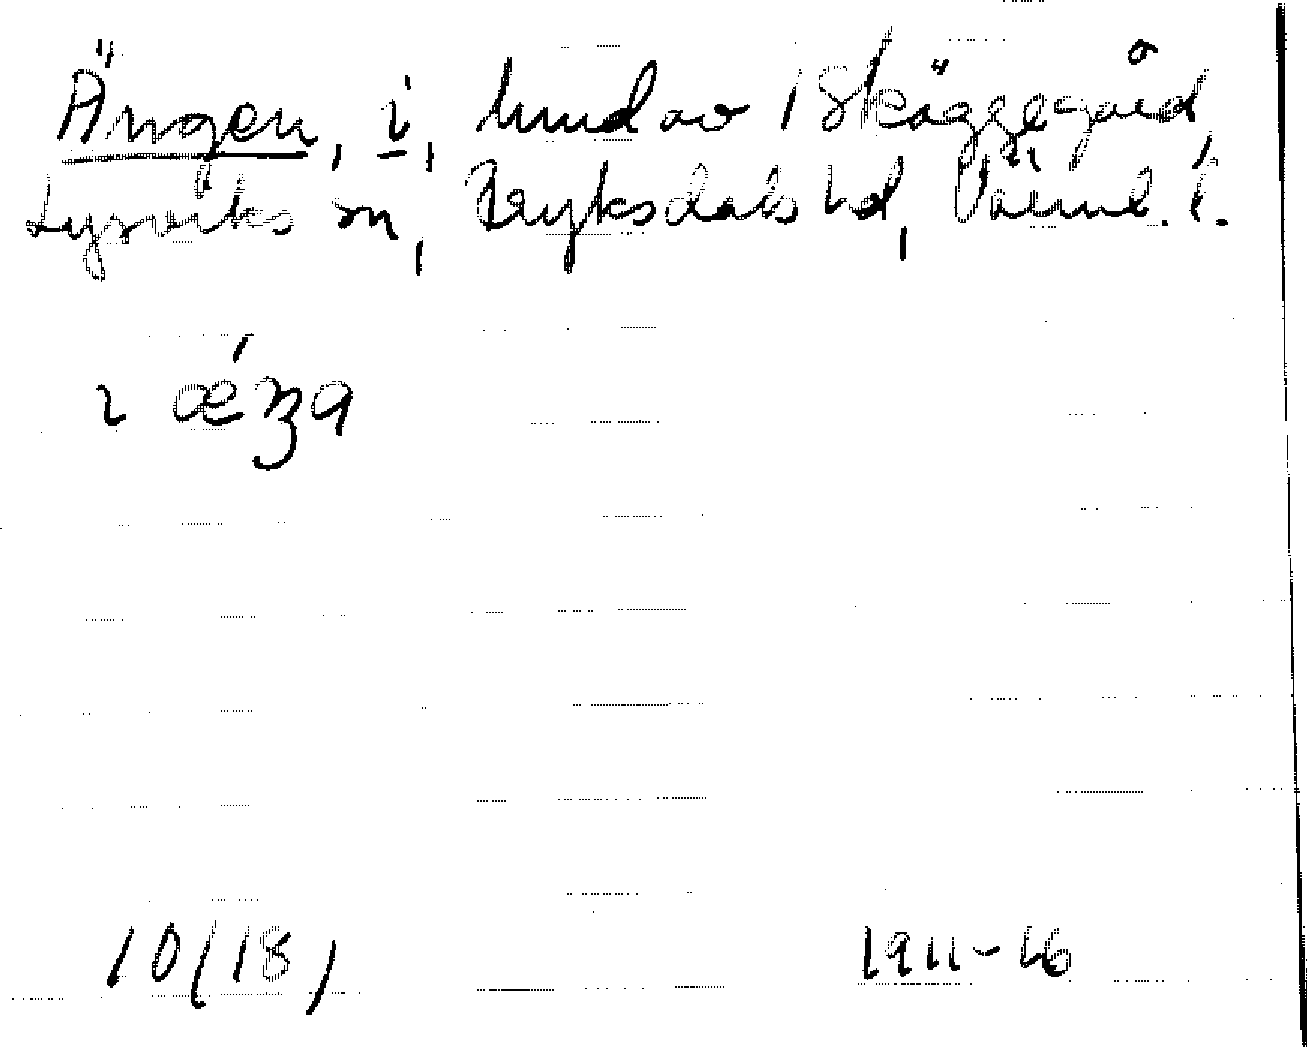 Ängen, i, hmd av 1 Skäggegård,
Lysviks sn, Fryksdals hd, Värml. l.
ɩ ǽʒa
10(18)
1911-16